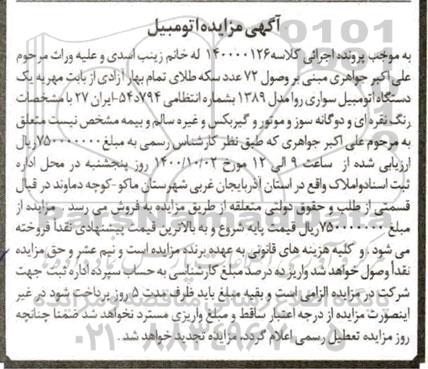 آگهی مزایده اتومبیل
به موجب پرونده اجرائی کلاسه ۱۴۰۰۰۰۱۲۶ له خانم زینب اسدی و علیه وراث مرحوم
علی اکبر جواهری مبنی بر وصول ۷۲ عدد سکه طلای تمام بهار آزادی از بابت مهریه یک
دستگاه اتومبیل سواری روا مدل ۱۳۸۹ بشماره انتظامی ۷۹۴د۵۴-ایران ۲۷ با مشخصات
رنگ نقره ای و دوگانه سوز و موتور و گیربکس و غیره سالم و بیمه مشخص نیست متعلق
به مرحوم علی اکبر جواهری که طبق نظر کارشناس رسمی به مبلغ ۷۵۰۰۰۰۰۰۰ ریال
ارزیابی شده از ساعت ۹ الی ۱۲ مورخ ۱۴۰۰/۱۰/۰۲ روز پنجشنبه در محل اداره
ثبت اسناد و املاک واقع در استان آذربایجان غربی شهرستان ماکو -کوچه دماوند در قبال
قسمتی از طلب و حقوق دولتی متعلقه از طریق مزایده به فروش می رسد . مزایده از
مبلغ ۷۵۰۰۰۰۰۰۰ ریال قیمت پایه شروع و به بالاترین قیمت پیشنهادی نقداً فروخته
می شود . و کلیه هزینه های قانونی به عهده برنده مزایده است و نیم عشر و حق مزایده
نقداً وصول خواهد شد واریز ده درصد مبلغ کارشناسی به حساب سپرده اداره ثبت جهت
شرکت در مزایده الزامی است و بقیه مبلغ باید ظرف مدت ۵ روز پرداخت شود در غیر
اینصورت مزایده از درجه اعتبار ساقط و مبلغ واریزی مسترد نخواهد شد ضمنا چنانچه
روز مزایده تعطیل رسمی اعلام گردد، مزایده تجدید خواهد شد .
ParsNamadData
۰۲۱-۸۸۳۴۹۶۷۰-۵